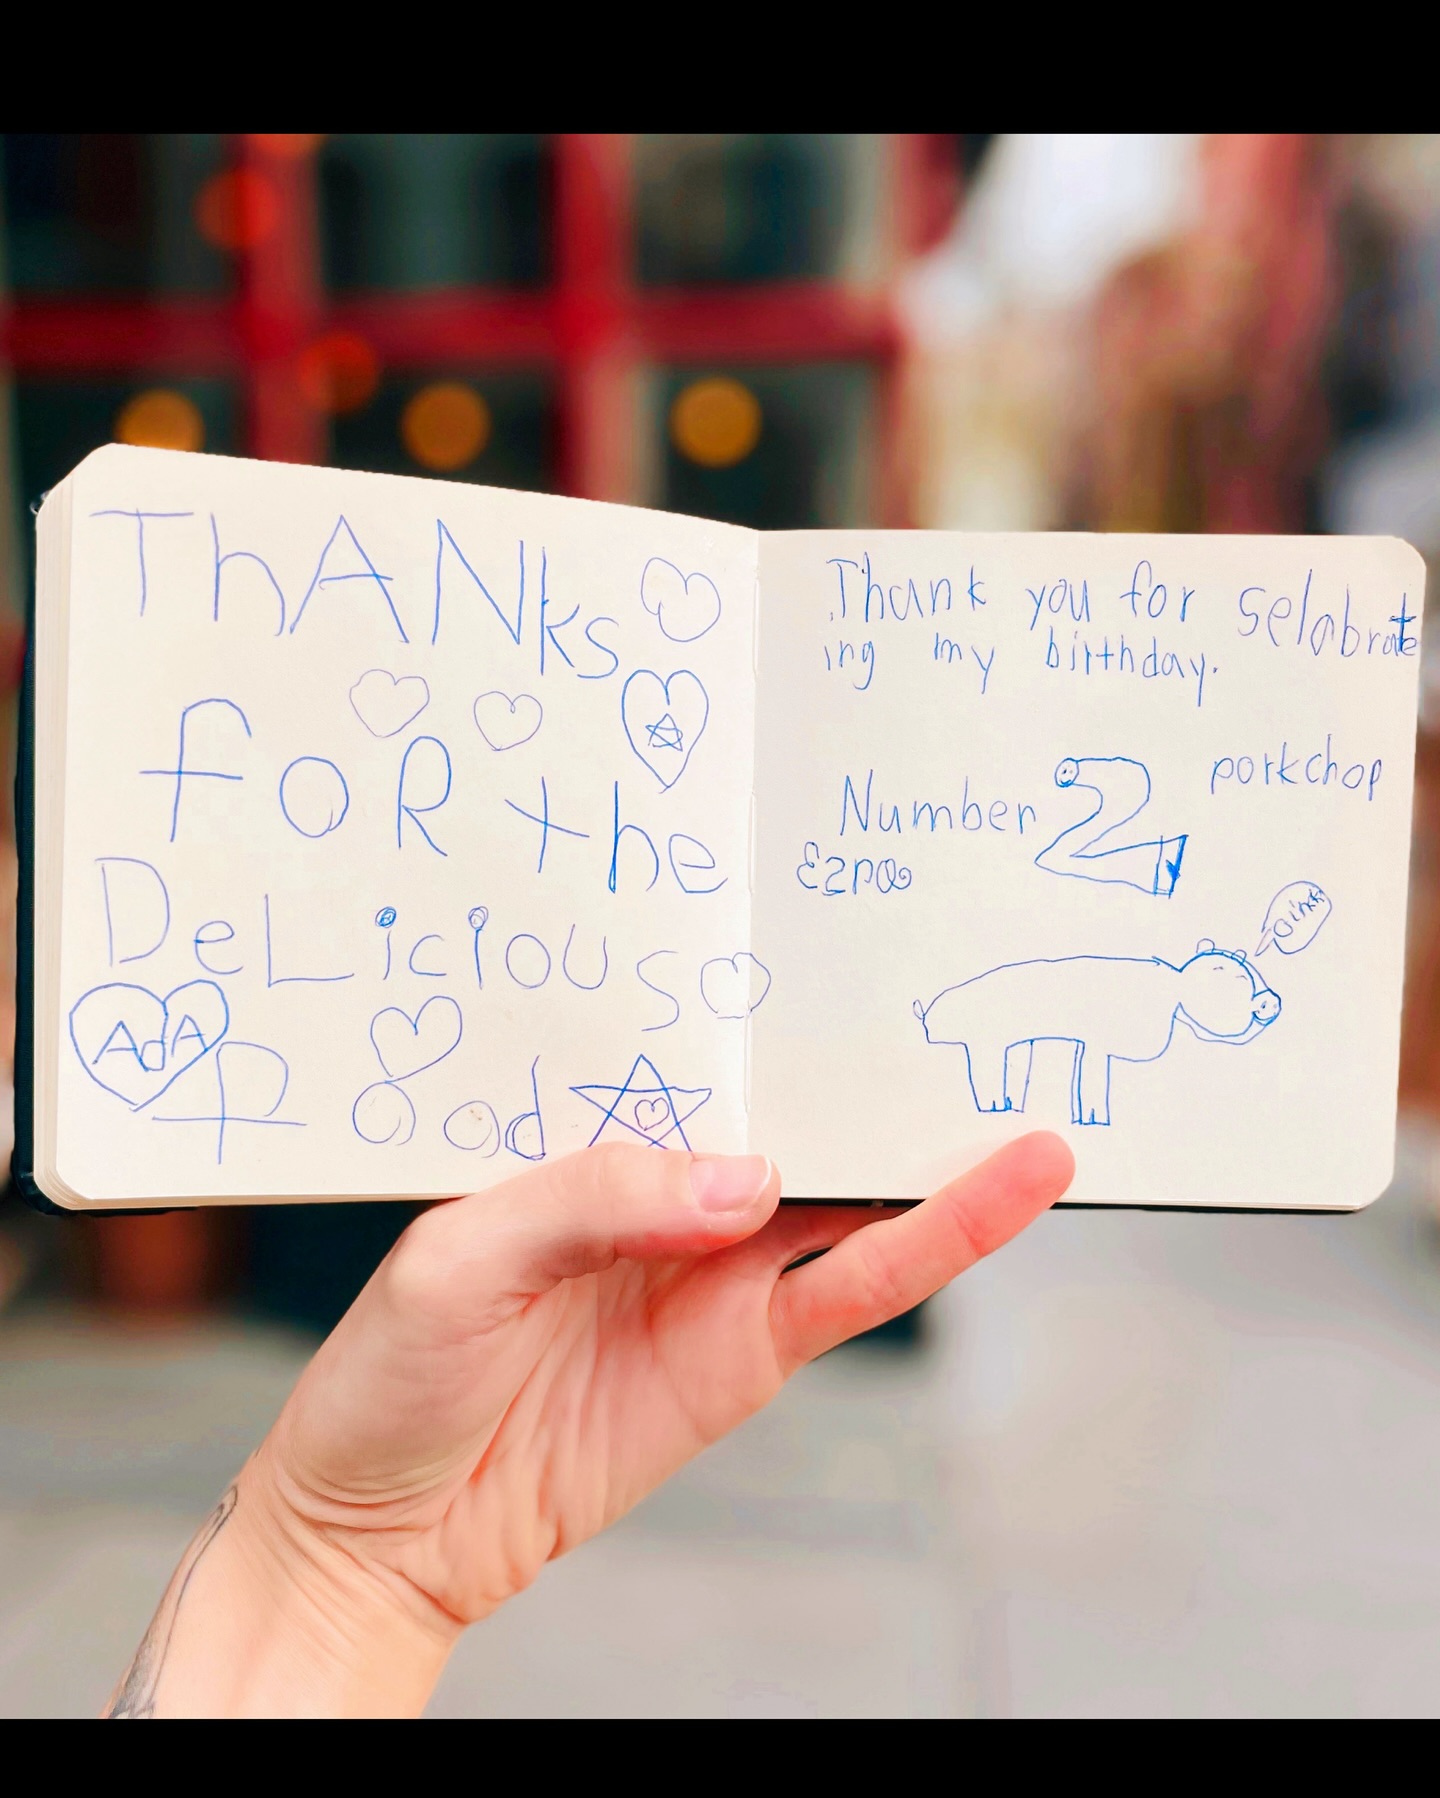 ThANks
foR the
DeLicious
AdA
Food
Thank you for selabrate
ing my birthday.
porkchop
Number 2
Ezra
oink